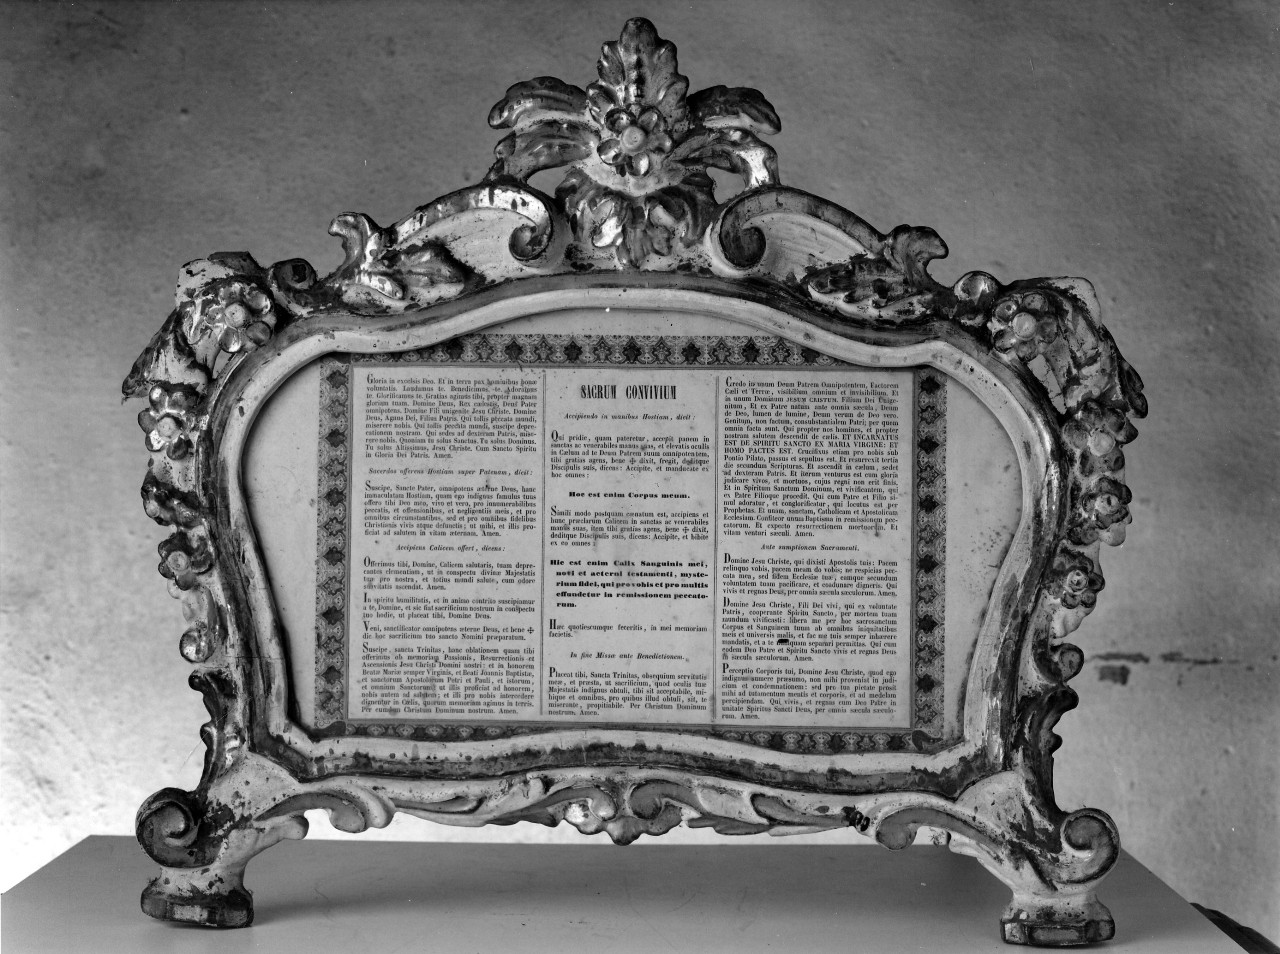 Gloria in excelsis Deo. Et in terra pax hominibus bonæ
voluntatis. Laudamus te. Benedicimus te. Adoramus
te. Glorificamus te. Gratias agimus tibi, propter magnam
gloriam tuam. Domine Deus, Rex cœlestis, Deus Pater
omnipotens. Domine Fili unigenite Jesu Christe. Domine
Deus, Agnus Dei, Filius Patris. Qui tollis peccata mundi,
miserere nobis. Qui tollis peccata mundi, suscipe depre-
cationem nostram. Qui sedes ad dexteram Patris, mise-
rere nobis. Quoniam tu solus Sanctus. Tu solus Dominus.
Tu solus Altissimus, Jesu Christe. Cum Sancto Spiritu
in Gloria Dei Patris. Amen.
Sacerdos offerens Hostiam super Patenam, dicit:
Suscipe, Sancte Pater, omnipotens æterne Deus, hanc
immaculatam Hostiam, quam ego indignus famulus tuus
offero tibi Deo meo, vivo et vero, pro innumerabilibus
peccatis, et offensionibus, et negligentiis meis, et pro
omnibus circumstantibus, sed et pro omnibus fidelibus
Christianis vivis atque defunctis; ut mihi, et illis pro-
ficiat ad salutem in vitam æternam. Amen.
Accipiens Calicem offert, dicens:
Offerimus tibi, Domine, Calicem salutaris, tuam depre-
cantes clementiam, ut in conspectu divinæ Majestatis
tuæ pro nostra, et totius mundi salute, cum odore
suavitatis ascendat. Amen.
In spiritu humilitatis, et in animo contrito suscipiamur
a te, Domine, et sic fiat sacrificium nostrum in conspectu
tuo hodie, ut placeat tibi, Domine Deus.
Veni, sanctificator omnipotens æterne Deus, et bene ✠
dic hoc sacrificium tuo sancto Nomini præparatum.
Suscipe, sancta Trinitas, hanc oblationem quam tibi
offerimus ob memoriam Passionis, Resurrectionis et
Ascensionis Jesu Christi Domini nostri: et in honorem
Beatæ Mariæ semper Virginis, et Beati Joannis Baptistæ,
et sanctorum Apostolorum Petri et Pauli, et istorum,
et omnium Sanctorum: ut illis proficiat ad honorem,
nobis autem ad salutem; et illi pro nobis intercedere
dignentur in Cœlis, quorum memoriam agimus in terris.
Per eumdem Christum Dominum nostrum. Amen.
SACRUM CONVIVIUM
Accipiendo in manibus Hostiam, dicit:
Qui pridie, quam pateretur, accepit panem in
sanctas ac venerabiles manus suas, et elevatis oculis
in Cœlum ad te Deum Patrem suum omnipotentem,
tibi gratias agens, bene ✠ dixit, fregit, deditque
Discipulis suis, dicens: Accipite, et manducate ex
hoc omnes:
Hoc est enim Corpus meum.
Simili modo postquam cœnatum est, accipiens et
hunc præclarum Calicem in sanctas ac venerabiles
manus suas, item tibi gratias agens, bene ✠ dixit,
deditque Discipulis suis, dicens: Accipite, et bibite
ex eo omnes:
Hic est enim Calix Sanguinis mei,
novi et aeterni testamenti, myste-
rium fidei, qui pro vobis et pro multis
effundetur in remissionem peccato-
rum.
Hæc quotiescumque feceritis, in mei memoriam
facietis.
In fine Missæ ante Benedictionem.
Placeat tibi, Sancta Trinitas, obsequium servitutis
meæ, et præsta, ut sacrificium, quod oculis tuæ
Majestatis indignus obtuli, tibi sit acceptabile, mi-
hique et omnibus, pro quibus illud obtuli, sit, te
miserante, propitiabile. Per Christum Dominum
nostrum. Amen.
Credo in unum Deum Patrem Omnipotentem, Factorem
Cœli et Terræ, visibilium omnium et invisibilium. Et
in unum Dominum JESUM CRISTUM, Filium Dei Unige-
nitum, Et ex Patre natum ante omnia sæcula, Deum
de Deo, lumen de lumine, Deum verum de Deo vero.
Genitum, non factum, consubstantialem Patri; per quem
omnia facta sunt. Qui propter nos homines, et propter
nostram salutem descendit de cœlis. ET INCARNATUS
EST DE SPIRITU SANCTO EX MARIA VIRGINE: ET
HOMO FACTUS EST. Crucifixus etiam pro nobis sub
Pontio Pilato, passus et sepultus est. Et resurrexit tertia
die secundum Scripturas. Et ascendit in cœlum, sedet
ad dexteram Patris. Et iterum venturus est cum gloria
judicare vivos, et mortuos, cujus regni non erit finis.
Et in Spiritum Sanctum Dominum, et vivificantem, qui
ex Patre Filioque procedit. Qui cum Patre et Filio si-
mul adoratur, et conglorificatur, qui locutus est per
Prophetas. Et unam, sanctam, Catholicam et Apostolicam
Ecclesiam. Confiteor unum Baptisma in remissionem pec-
catorum. Et expecto resurrectionem mortuorum. Et
vitam venturi sæculi. Amen.
Ante sumptionem Sacramenti.
Domine Jesu Christe, qui dixisti Apostolis tuis: Pacem
relinquo vobis, pacem meam do vobis; ne respicias pec-
cata mea, sed fidem Ecclesiæ tuæ; eamque secundum
voluntatem tuam pacificare, et coadunare digneris. Qui
vivis et regnas Deus, per omnia sæcula sæculorum. Amen.
Domine Jesu Christe, Fili Dei vivi, qui ex voluntate
Patris, cooperante Spiritu Sancto, per mortem tuam
mundum vivificasti: libera me per hoc sacrosanctum
Corpus et Sanguinem tuum ab omnibus iniquitatibus
meis et universis malis, et fac me tuis semper inhærere
mandatis, et a te separari permittas. Qui cum
eodem Deo Patre et Spiritu Sancto vivis et regnas Deus
in sæcula sæculorum. Amen.
Perceptio Corporis tui, Domine Jesu Christe, quod ego
indignus sumere præsumo, non mihi proveniat in judi-
cium et condemnationem: sed pro tua pietate prosit
mihi ad tutamentum mentis et corporis, et ad medelam
percipiendam. Qui vivis, et regnas cum Deo Patre in
unitate Spiritus Sancti Deus, per omnia sæcula sæculo-
rum. Amen.